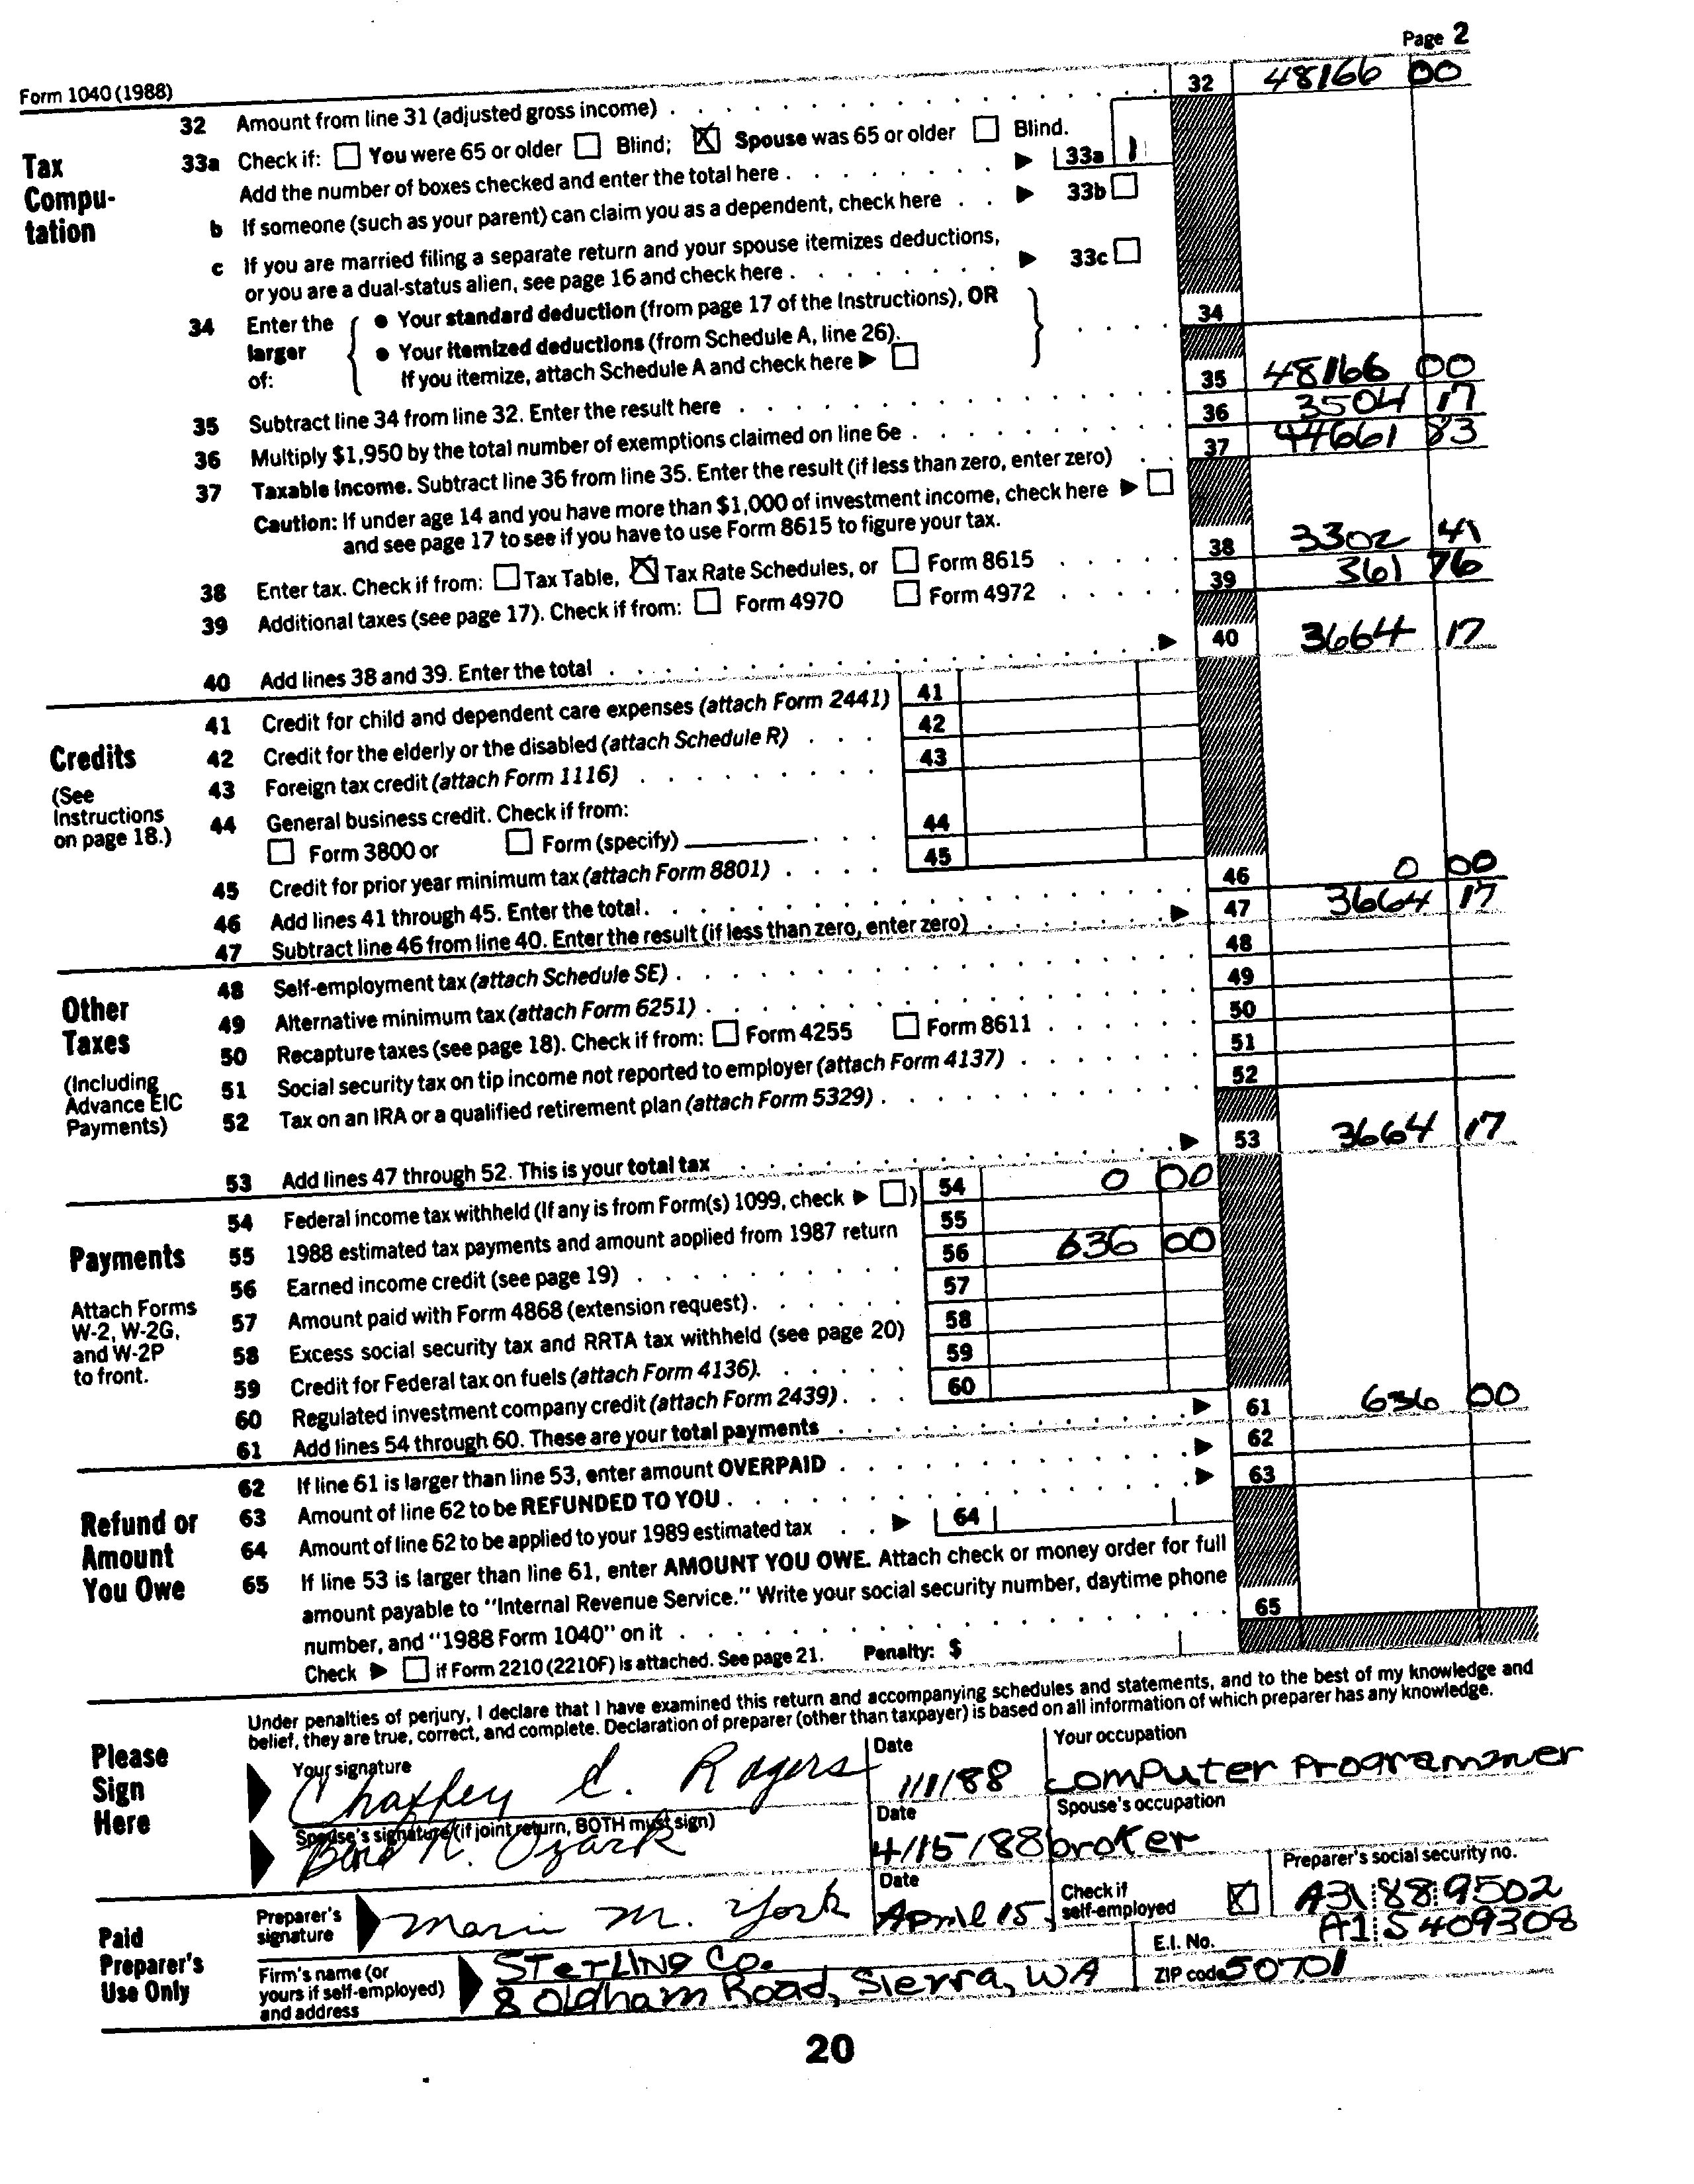 Page 2
Form 1040 (1988)
32 Amount from line 31 (adjusted gross income) 32 48166 00
Tax Compu-tation
33a Check if: You were 65 or older Blind; X Spouse was 65 or older Blind.
Add the number of boxes checked and enter the total here 33a 1
b If someone (such as your parent) can claim you as a dependent, check here 33b
c If you are married filing a separate return and your spouse itemizes deductions,
or you are a dual-status alien, see page 16 and check here 33c
34 Enter the larger of: • Your standard deduction (from page 17 of the Instructions), OR 34
• Your itemized deductions (from Schedule A, line 26).
If you itemize, attach Schedule A and check here
35 Subtract line 34 from line 32. Enter the result here 35 48166 00
36 Multiply $1,950 by the total number of exemptions claimed on line 6e 36 3504 17
37 Taxable income. Subtract line 36 from line 35. Enter the result (if less than zero, enter zero) 37 44661 83
Caution: If under age 14 and you have more than $1,000 of investment income, check here
and see page 17 to see if you have to use Form 8615 to figure your tax.
38 Enter tax. Check if from: Tax Table, X Tax Rate Schedules, or Form 8615 38 3302 41
39 Additional taxes (see page 17). Check if from: Form 4970 Form 4972 39 361 76
40 Add lines 38 and 39. Enter the total 40 3664 17
Credits
(See Instructions on page 18.)
41 Credit for child and dependent care expenses (attach Form 2441) 41
42 Credit for the elderly or the disabled (attach Schedule R) 42
43 Foreign tax credit (attach Form 1116) 43
44 General business credit. Check if from:
Form 3800 or Form (specify) 44
45 Credit for prior year minimum tax (attach Form 8801) 45
46 Add lines 41 through 45. Enter the total 46 0 00
47 Subtract line 46 from line 40. Enter the result (if less than zero, enter zero) 47 3664 17
Other Taxes
(Including Advance EIC Payments)
48 Self-employment tax (attach Schedule SE) 48
49 Alternative minimum tax (attach Form 6251) 49
50 Recapture taxes (see page 18). Check if from: Form 4255 Form 8611 50
51 Social security tax on tip income not reported to employer (attach Form 4137) 51
52 Tax on an IRA or a qualified retirement plan (attach Form 5329) 52
53 Add lines 47 through 52. This is your total tax 53 3664 17
Payments
Attach Forms W-2, W-2G, and W-2P to front.
54 Federal income tax withheld (If any is from Form(s) 1099, check ) 54 0 00
55 1988 estimated tax payments and amount applied from 1987 return 55
56 Earned income credit (see page 19) 56 636 00
57 Amount paid with Form 4868 (extension request) 57
58 Excess social security tax and RRTA tax withheld (see page 20) 58
59 Credit for Federal tax on fuels (attach Form 4136) 59
60 Regulated investment company credit (attach Form 2439) 60
61 Add lines 54 through 60. These are your total payments 61 636 00
Refund or Amount You Owe
62 If line 61 is larger than line 53, enter amount OVERPAID 62
63 Amount of line 62 to be REFUNDED TO YOU 63
64 Amount of line 62 to be applied to your 1989 estimated tax 64
65 If line 53 is larger than line 61, enter AMOUNT YOU OWE. Attach check or money order for full
amount payable to "Internal Revenue Service." Write your social security number, daytime phone
number, and "1988 Form 1040" on it 65
Check if Form 2210 (2210F) is attached. See page 21. Penalty: $
Please Sign Here
Under penalties of perjury, I declare that I have examined this return and accompanying schedules and statements, and to the best of my knowledge and
belief, they are true, correct, and complete. Declaration of preparer (other than taxpayer) is based on all information of which preparer has any knowledge.
Your signature Date Your occupation
C. Rogers 1/1/88 computer programmer
Spouse's signature (if joint return, BOTH must sign) Date Spouse's occupation
K. Ozark 4/15/88 broker
Paid Preparer's Use Only
Preparer's signature Date Check if self-employed X Preparer's social security no.
M. York April 15 A31 88 9502
Firm's name (or yours if self-employed) and address E.I. No. ZIP code
Sterling Co. A1 5409308
8 Oldham Road, Sierra, WA 50701
20